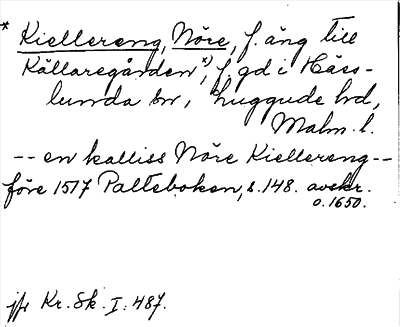 * Kiellereng, Nöre, f. äng till
Källaregården*), f. gd i Häss-
lunda sn, Luggude hd,
Malm. l.
-- en kalliss Nöre Kiellereng --
före 1517 Palteboken, s. 148. avskr.
o. 1650.
jfr Kr. Sk. I: 487.